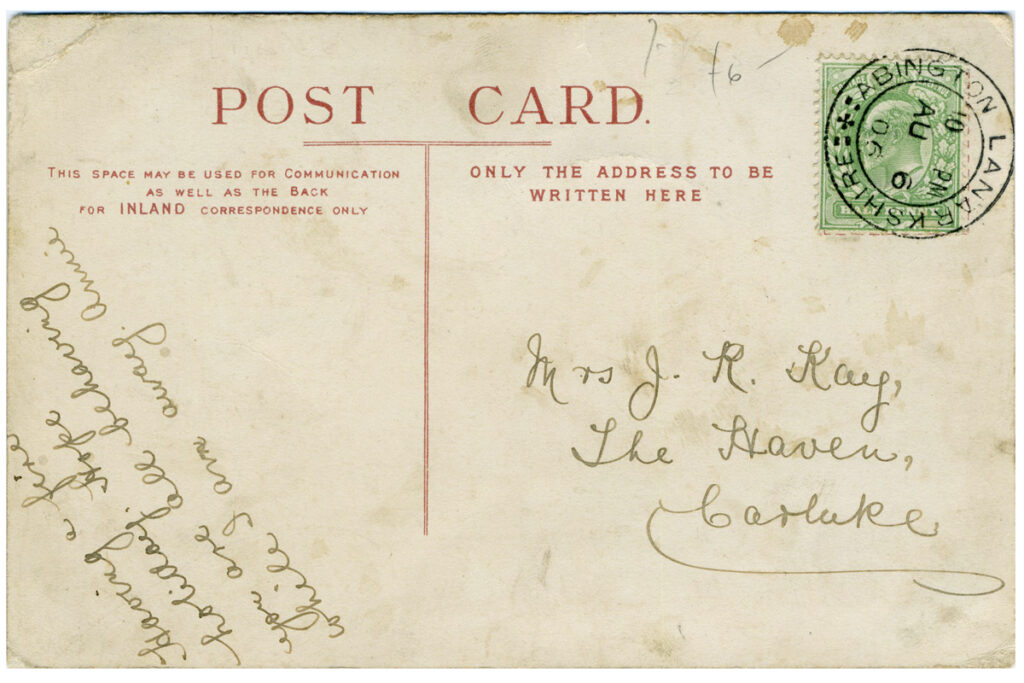 POST CARD.
THIS SPACE MAY BE USED FOR COMMUNICATION
AS WELL AS THE BACK
FOR INLAND CORRESPONDENCE ONLY
ONLY THE ADDRESS TO BE
WRITTEN HERE
ABINGTON LANARKSHIRE
PM
AU
06
Mrs J. R. Kay,
The Haven,
Carluke
Having a fine
holiday. Hope
you are all behaving
while I am away. Annie